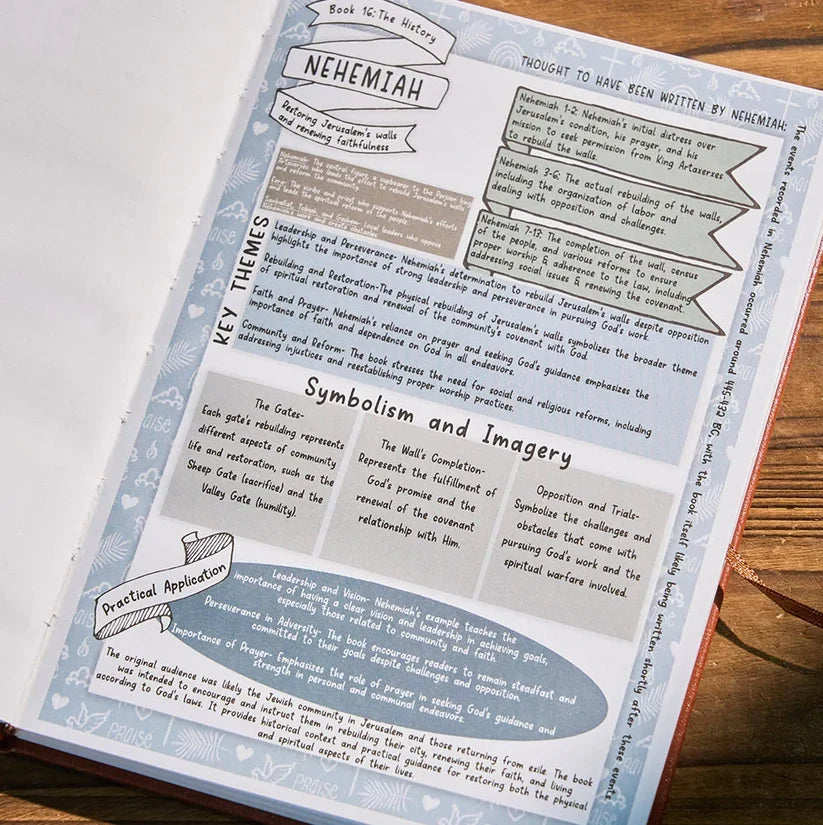 Book 16: The History
NEHEMIAH
Restoring Jerusalem's walls
and renewing faithfulness
THOUGHT TO HAVE BEEN WRITTEN BY NEHEMIAH:
The events recorded in Nehemiah occurred around 445-432 BC, with the book itself likely being written shortly after these events.
Nehemiah 1-2: Nehemiah's initial distress over
Jerusalem's condition, his prayer, and his
mission to seek permission from King Artaxerxes
to rebuild the walls.
Nehemiah 3-6: The actual rebuilding of the walls,
including the organization of labor and
dealing with opposition and challenges.
Nehemiah 7-13: The completion of the wall, census
of the people, and various reforms to ensure
proper worship & adherence to the law, including
addressing social issues & renewing the covenant.
Nehemiah- The central figure, a cupbearer to the Persian king
Artaxerxes who leads the effort to rebuild Jerusalem's walls
and reform the community.
Ezra- The scribe and priest who supports Nehemiah's efforts
and leads the spiritual reform of the people.
Sanballat, Tobiah, and Geshem- Local leaders who oppose
Nehemiah's work and create obstacles
KEY THEMES
Leadership and Perseverance- Nehemiah's determination to rebuild Jerusalem's walls despite opposition
highlights the importance of strong leadership and perseverance in pursuing God's work.
Rebuilding and Restoration-The physical rebuilding of Jerusalem's walls symbolizes the broader theme
of spiritual restoration and renewal of the community's covenant with God.
Faith and Prayer- Nehemiah's reliance on prayer and seeking God's guidance emphasizes the
importance of faith and dependence on God in all endeavors.
Community and Reform- The book stresses the need for social and religious reforms, including
addressing injustices and reestablishing proper worship practices.
Symbolism and Imagery
The Gates-
Each gate's rebuilding represents
different aspects of community
life and restoration, such as the
Sheep Gate (sacrifice) and the
Valley Gate (humility).
The Wall's Completion-
Represents the fulfillment of
God's promise and the
renewal of the covenant
relationship with Him.
Opposition and Trials-
Symbolize the challenges and
obstacles that come with
pursuing God's work and the
spiritual warfare involved.
Practical Application
Leadership and Vision- Nehemiah's example teaches the
importance of having a clear vision and leadership in achieving goals,
especially those related to community and faith.
Perseverance in Adversity- The book encourages readers to remain steadfast and
committed to their goals despite challenges and opposition.
Importance of Prayer- Emphasizes the role of prayer in seeking God's guidance and
strength in personal and communal endeavors.
The original audience was likely the Jewish community in Jerusalem and those returning from exile. The book
was intended to encourage and instruct them in rebuilding their city, renewing their faith, and living
according to God's laws. It provides historical context and practical guidance for restoring both the physical
and spiritual aspects of their lives.
praise
praise
praise
praise